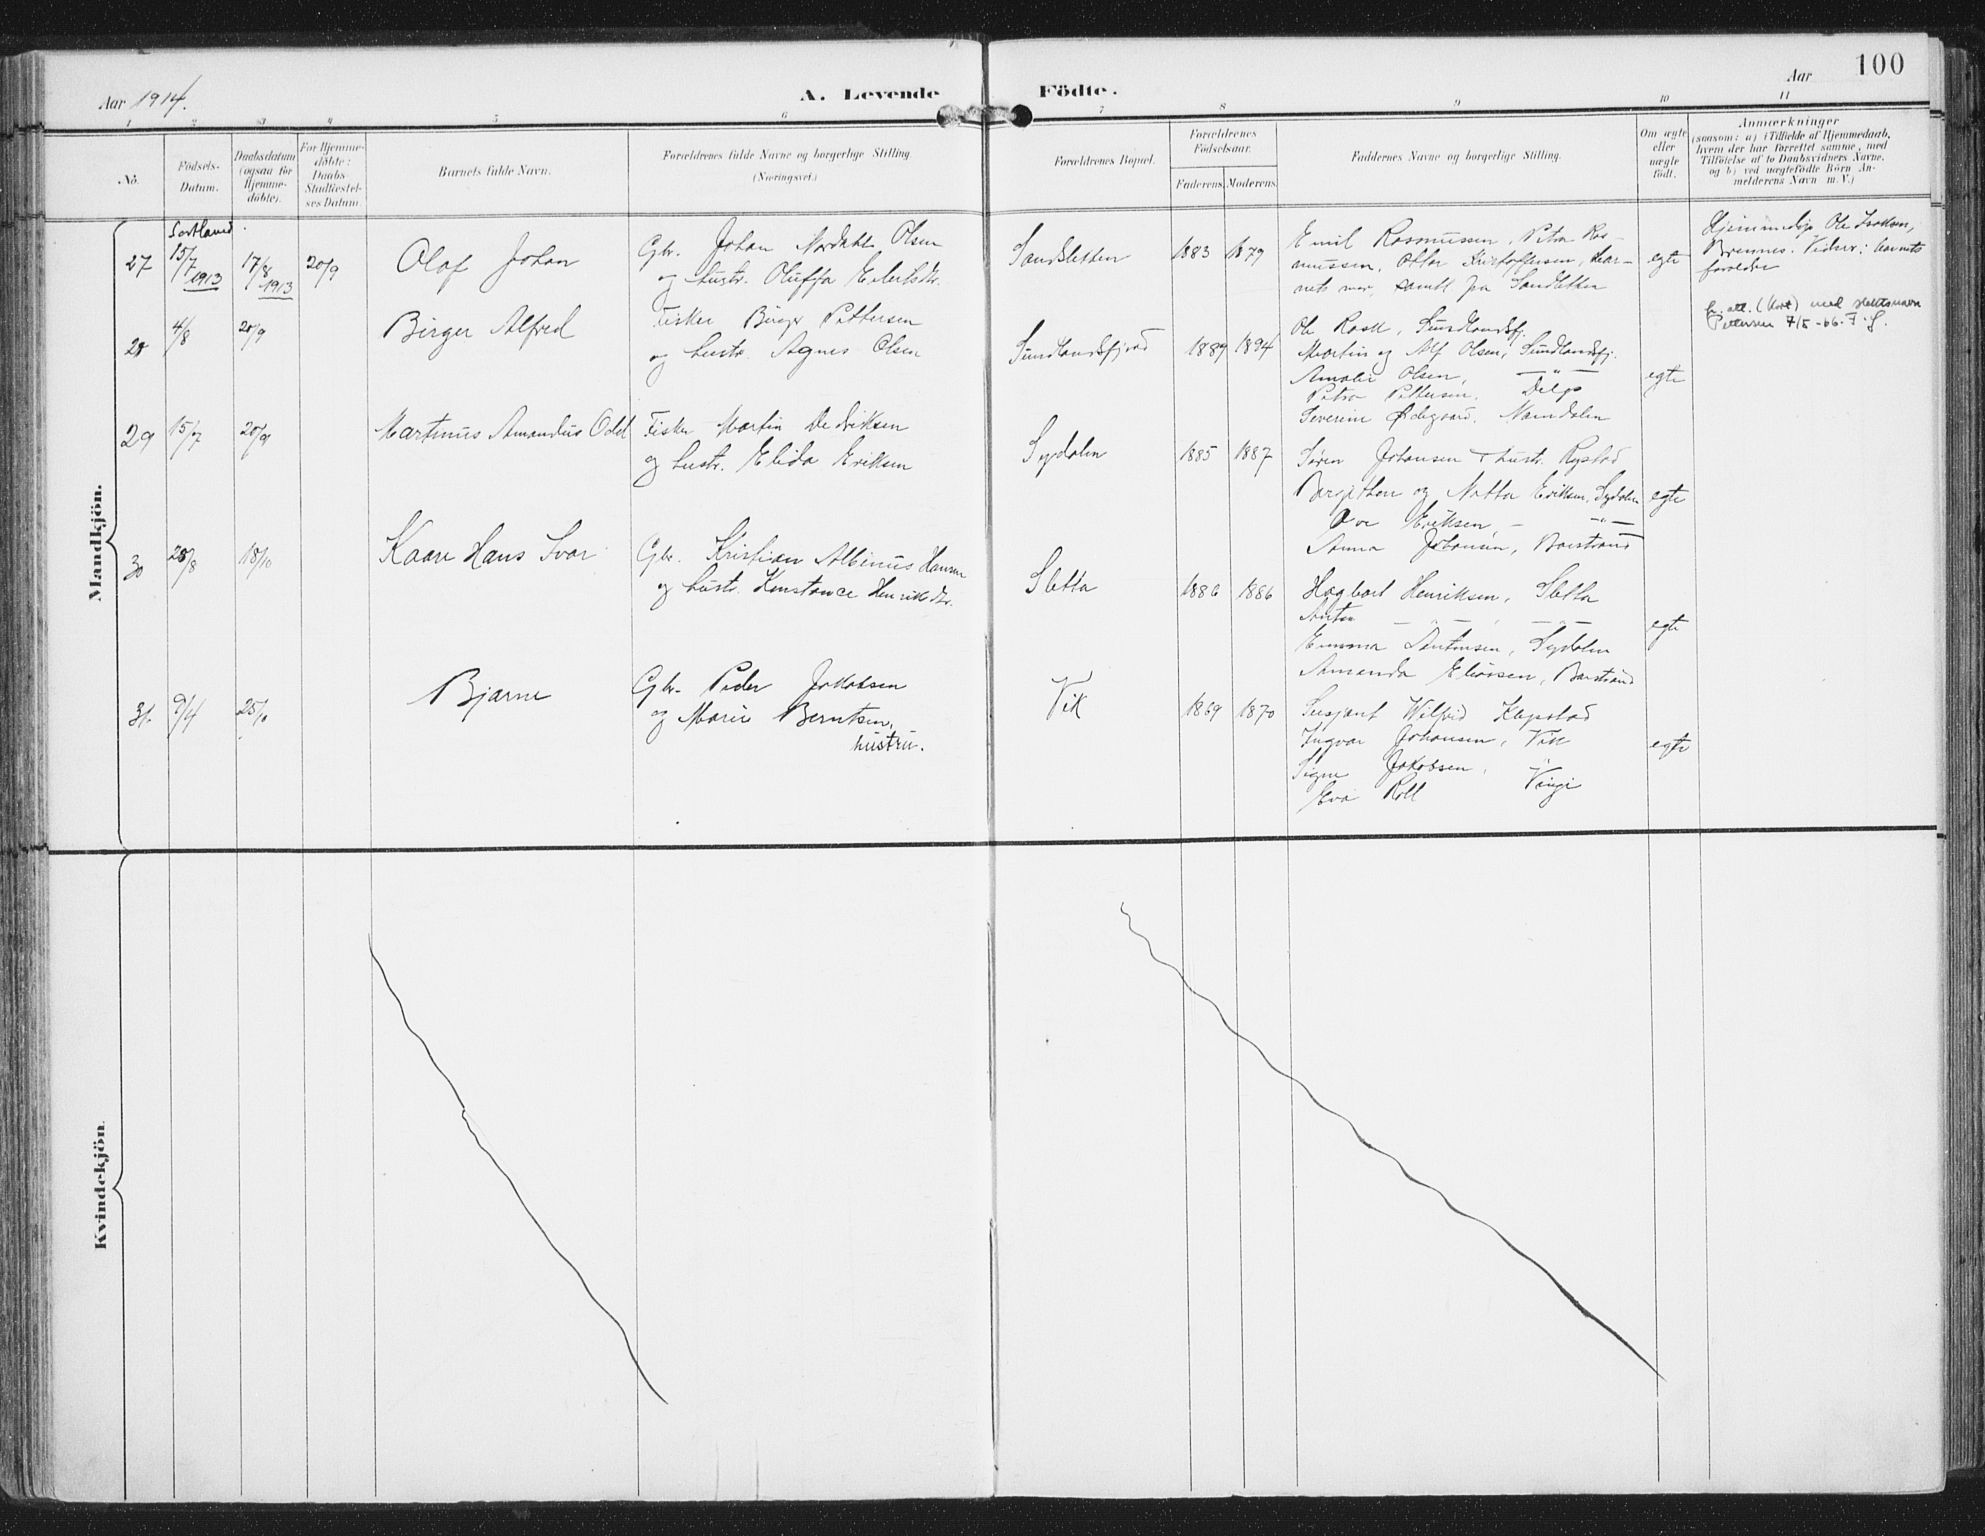 Aar 1914.
A. Levende
Födte.
Aar
100
1 2 3 4 5 6 7 8 9 10 11
No.
Födsels-
Datum.
Daabsdatum
(ogsaa for
Hjemme-
döbte).
For Hjemme-
döbte:
Daabs-
Stadfæstel-
ses Datum.
Barnets fulde Navn.
Forældrenes fulde Navne og borgerlige Stilling.
(Næringsvei.)
Forældrenes Bopæl.
Forældrenes
Födselsaar.
Faderens. Moderens.
Faddernes Navne og borgerlige Stilling.
Om ægte
eller
uægte
födt.
Anmærkninger
(saasom: a) i Tilfælde af Hjemmedaab,
hvem der har forrettet samme, med
Tilföielse af to Daabsvidners Navne,
og b) ved uægtefödte Börn An-
melderens Navn m. V.)
Mandkjön.
Sortland.
27 15/7 1913 17/8 1913 20/9
Olaf Johan
Gbr. Johan Nordahl Olsen
og hustr. Oluffa Eilertsdr.
Sandsletten
1883 1879
Emil Rasmussen, Petra Ras-
mussen, Ottar Kristoffersen, bar-
nets mor, samtl fra Sandsletten
egte
Hjemmedøp Ole Isaksen,
Brennes. Vidner: barnets
foreldre
28 4/8 20/9
Birger Alfred
Fisker Birger Pettersen
og hustr. Agnes Olsen
Sundlandsfjord
1889 1894
Ole Rask, Sundlandsfj.
Martin og Alf Olsen, Sundlandsfj.
Amalie Olsen, — " —
Petra Pettersen, Delp
Severine Ødegaard, Namdalen
egte
att. (kort) med slektsnavn
Pettersen 7/5-66.
29 15/7 20/9
Martinus Amandus Odd
Fisker Martin Dedriksen
og hustr. Elida Eriksen
Sydalen
1885 1887
Søren Johansen + hustr. Rystad
og Eriksen, Sydalen
Eriksen — " —
Anna Johansen, Barstrand
egte
30 28/8 18/10
Kaare Hans Ivar
Gbr. Kristian Albinus Hansen
og hustr. Konstance Henriksdr.
Sletta
1886 1886
Hagbart Henriksen, Sletta
— " — — " —
Emma Antonsen, Sydalen
Amanda Eliassen, Barstrand
egte
31. 9/4 25/10
Bjarne
Gbr. Peder Jakobsen
og Marie Berntsen,
hustru.
Vik
1869 1870
Sersjant Wilfrid Kapstad
Ingvar Johansen, Vik
Signe Jakobsen, "
Eva Roll
egte
Kvindekjön.